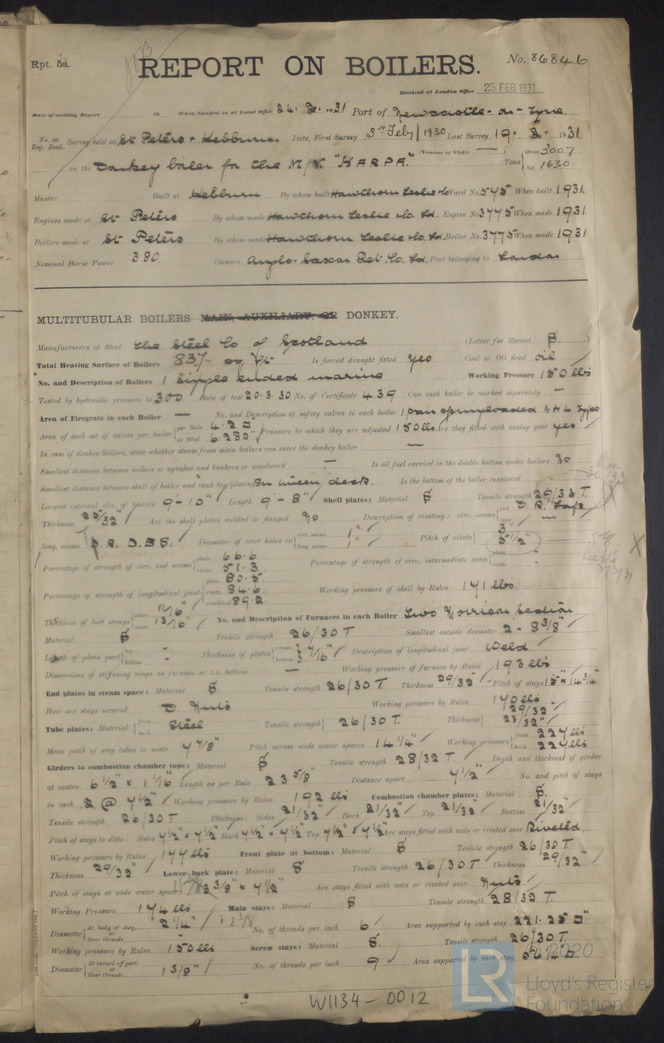 Rpt. 5a.
REPORT ON BOILERS.
No. 86846
Received at London Office 25 FEB 1931
Date of writing Report 19 When handed in at Local Office 24. 2. 1931 Port of Newcastle-on-Tyne
No. in Reg. Book. Survey held at St Peters & Hebburn. Date, First Survey 3rd Feby 1930 Last Survey 19. 2. 1931
on the Donkey boiler for the M/V "HARPA." (Number of Visits —) Tons Gross 3007 Net 1630
Master Built at Hebburn By whom built Hawthorn Leslie & Co Yard No. 545 When built 1931
Engines made at St Peters By whom made Hawthorn Leslie & Co Ld. Engine No. 3775 When made 1931
Boilers made at St Peters By whom made Hawthorn Leslie & Co Ld. Boiler No. 3775 When made 1931
Nominal Horse Power 380 Owners Anglo-Saxon Pet. Co. Ld. Port belonging to London
MULTITUBULAR BOILERS MAIN, AUXILIARY, OR DONKEY.
Manufacturers of Steel The Steel Co of Scotland (Letter for Record S.)
Total Heating Surface of Boilers 837 sq. ft. Is forced draught fitted yes Coal or Oil fired oil
No. and Description of Boilers 1 Single ended marine Working Pressure 150 lbs
Tested by hydraulic pressure to 300 Date of test 20.3.30 No. of Certificate 439 Can each boiler be worked separately —
Area of Firegrate in each Boiler — No. and Description of safety valves to each boiler
Area of each set of valves per boiler per Rule 4.20 as fitted 6.280 Pressure to which they are adjusted 150 lbs Are they fitted with easing gear yes
In case of donkey boilers, state whether steam from main boilers can enter the donkey boiler —
Smallest distance between boilers or uptakes and bunkers or woodwork — Is oil fuel carried in the double bottom under boilers No
Smallest distance between shell of boiler and tank top plating In tween decks. Is the bottom of the boiler insulated
Largest internal dia. of boilers 9'-10" Length 9'-8" Shell plates: Material S Tensile strength 29/33 T.
Thickness 23/32" Are the shell plates welded or flanged No Description of riveting: circ. seams D.R. Lap
long. seams D.R. D.B.S. Diameter of rivet holes in circ. seams 1" long. seams 1" Pitch of rivets 3" 5 1/2"
Percentage of strength of circ. end seams plate 66.6 rivets 51.3 Percentage of strength of circ. intermediate seam
Percentage of strength of longitudinal joint plate 80.5 rivets 84.6 combined 89.2 Working pressure of shell by Rules 171 lbs
Thickness of butt straps outer 11/16" inner 13/16" No. and Description of Furnaces in each Boiler Two Morrison section
Material S Tensile strength 26/30 T Smallest outside diameter 2-8 3/8"
Length of plain part top bottom Thickness of plates crown bottom 7/16" Description of longitudinal joint Weld
Dimensions of stiffening rings on furnace or c.c. bottom — Working pressure of furnace by Rules 193 lbs
End plates in steam space: Material S. Tensile strength 26/30 T. Thickness 29/32" Pitch of stays 15" x 14 3/4"
How are stays secured D. Nuts Working pressure by Rules 170 lbs
Tube plates: Material front back Steel Tensile strength 26/30 T. Thickness 29/32" 23/32"
Mean pitch of stay tubes in nests 7 7/8" Pitch across wide water spaces 14 1/4" Working pressure front 227 lbs back 227 lbs
Girders to combustion chamber tops: Material S Tensile strength 28/32 T. Depth and thickness of girder
at centre 6 1/2" x 1 1/16 Length as per Rule 23 5/8" Distance apart 7 1/2" No. and pitch of stays
in each 2 @ 7 1/2" Working pressure by Rules 192 lbs Combustion chamber plates: Material S.
Tensile strength 26/30 T Thickness: Sides 21/32" Back 21/32" Top 21/32" Bottom 21/32"
Pitch of stays to ditto: Sides 7 1/2" x 7 1/2" Back 7 1/2" x 7 1/2" Top 7 1/2" x 7 1/2" Are stays fitted with nuts or riveted over Rivetted.
Working pressure by Rules 177 lbs Front plate at bottom: Material S Tensile strength 26/30 T.
Thickness 29/32" Lower back plate: Material S Tensile strength 26/30 T. Thickness 29/32"
Pitch of stays at wide water space 13 3/8" x 7 1/2" Are stays fitted with nuts or riveted over Nuts.
Working Pressure 174 lbs Main stays: Material S Tensile strength 28/32 T.
Diameter At body of stay, or Over threads 2 1/4" No. of threads per inch 6 Area supported by each stay 221.25
Working pressure by Rules 150 lbs Screw stays: Material S. Tensile strength 26/30 T.
Diameter At turned off part, or Over threads 1 3/8" No. of threads per inch 9 Area supported by each stay 56 1/4
W1134-0012
2020
LR Lloyd's Register
Foundation